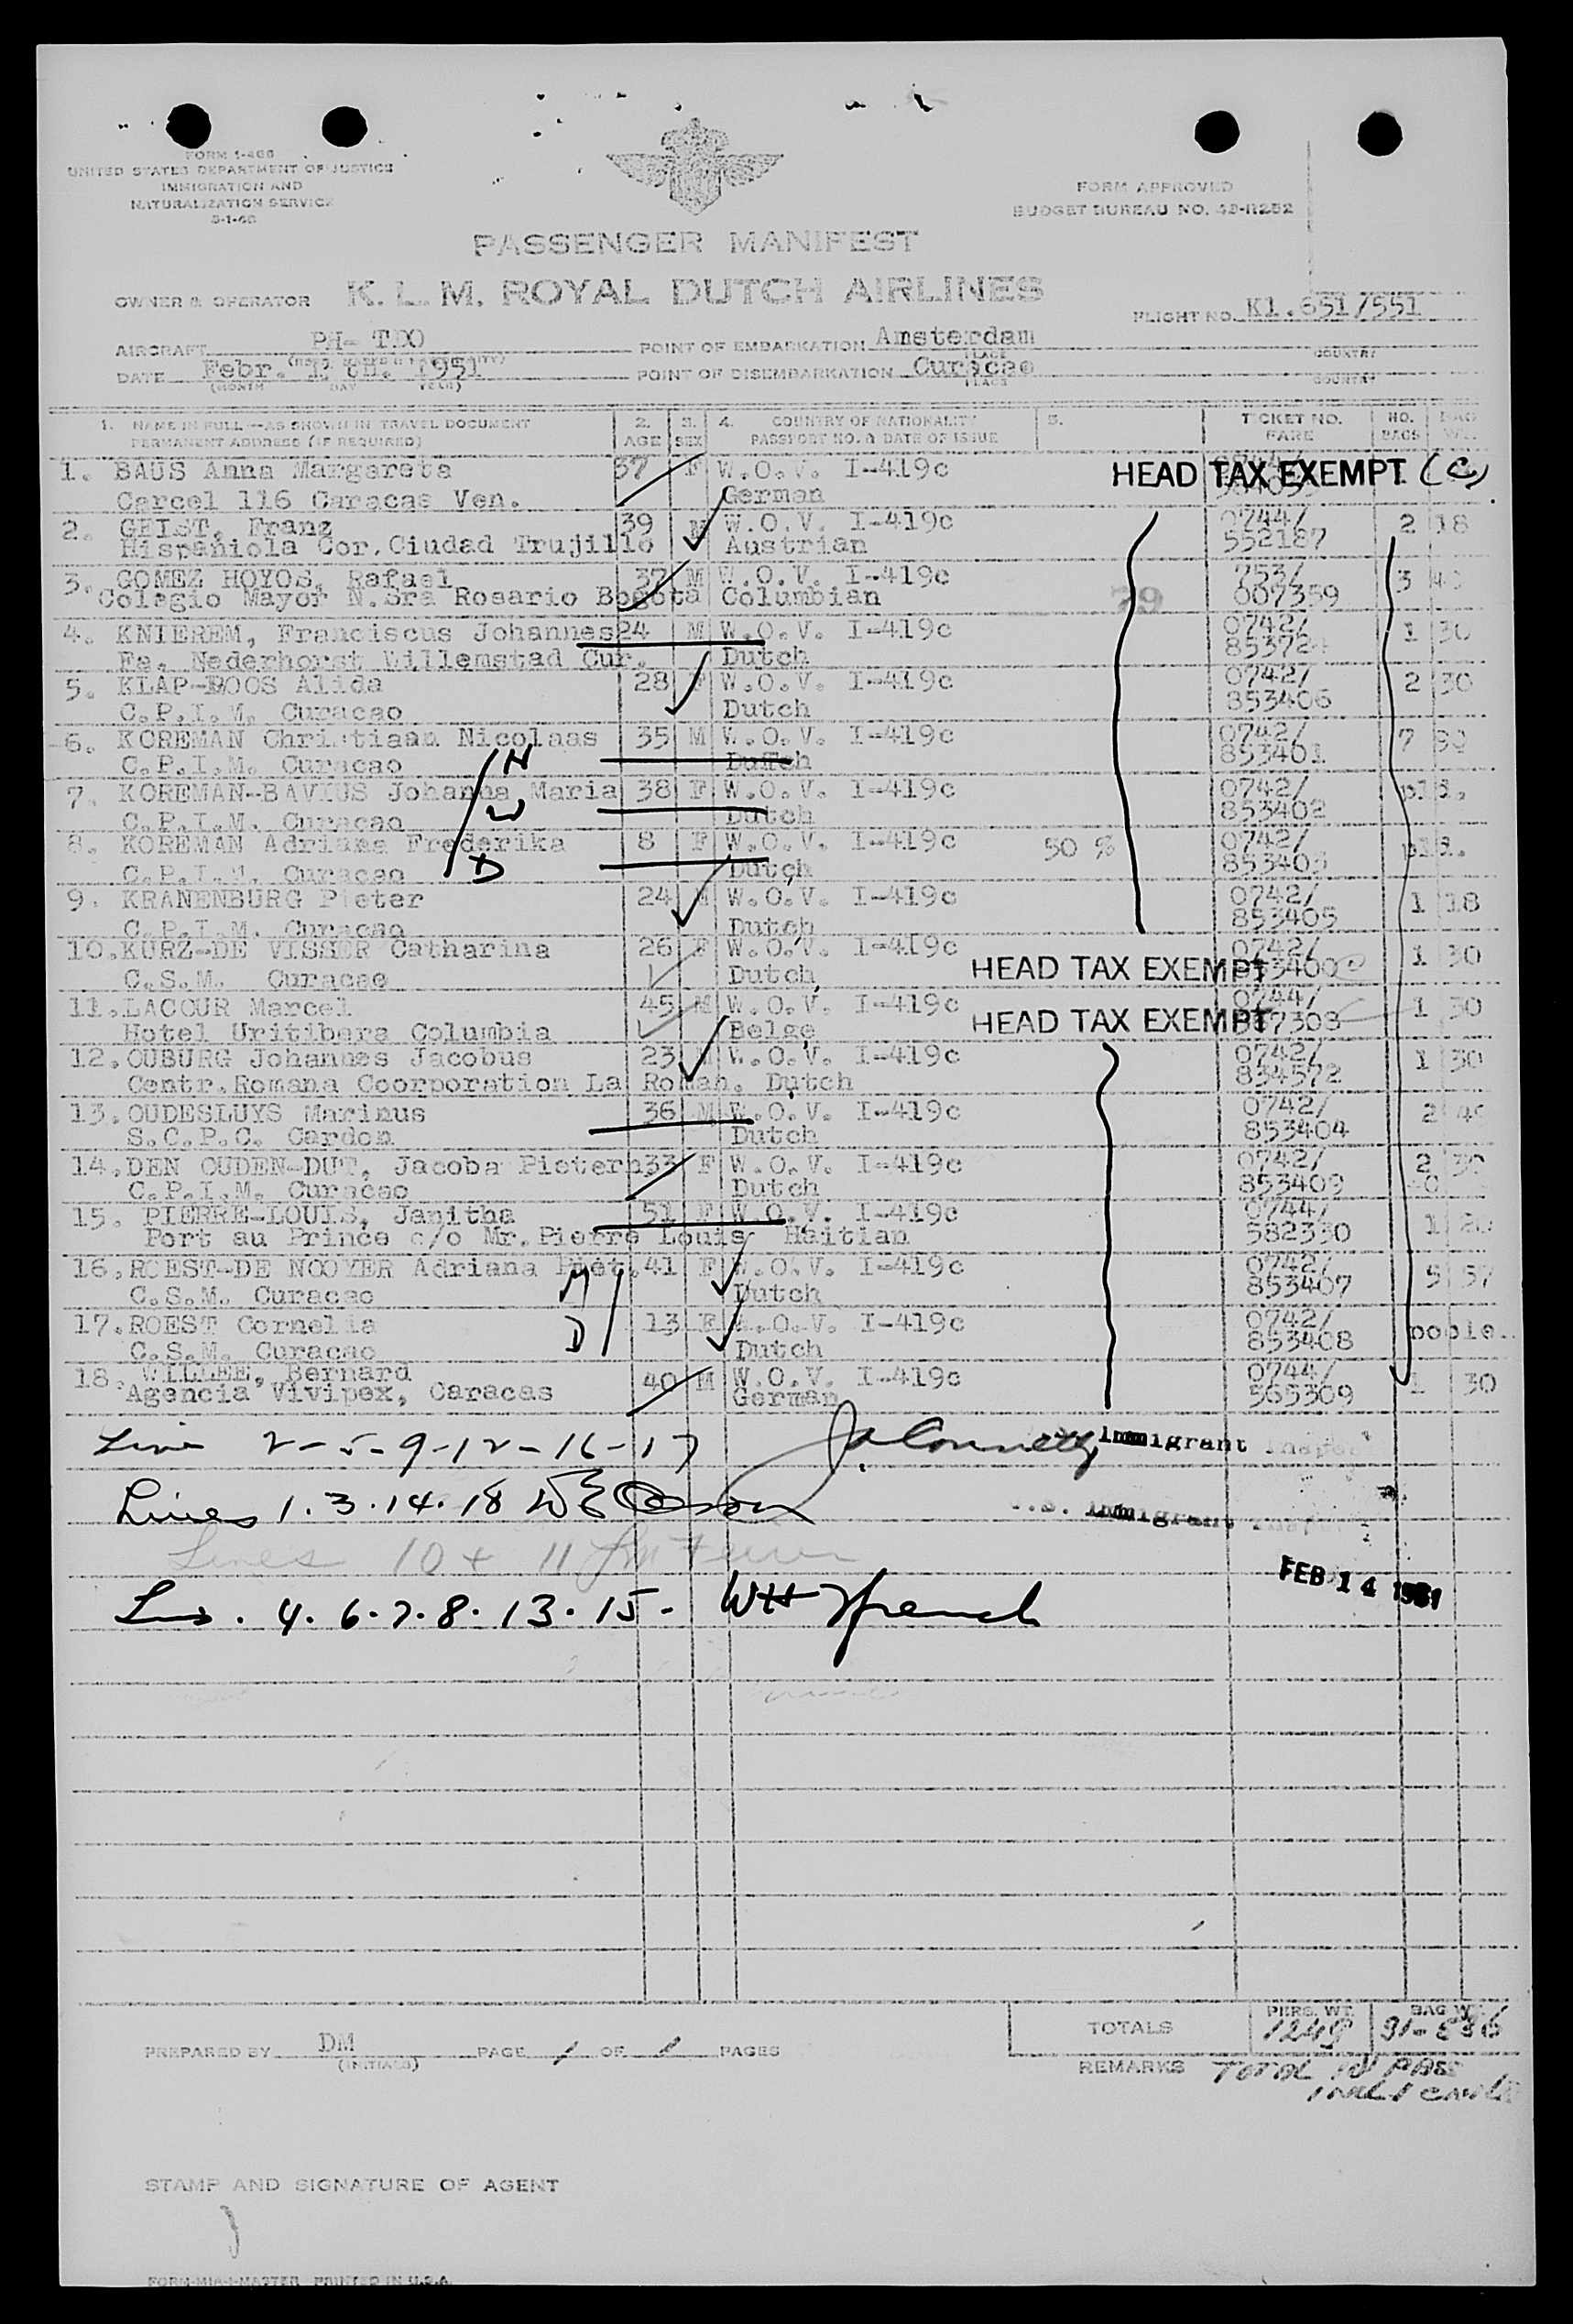 FORM I-466
UNITED STATES DEPARTMENT OF JUSTICE
IMMIGRATION AND
NATURALIZATION SERVICE
FORM APPROVED
BUDGET BUREAU NO. 43-R252
PASSENGER MANIFEST
OWNER & OPERATOR K. L. M. ROYAL DUTCH AIRLINES
FLIGHT NO. Kl.651/551
AIRCRAFT PH- TDO POINT OF EMBARKATION Amsterdam
PLACE COUNTRY
DATE Febr. th. 1951 POINT OF DISEMBARKATION Curacao
(MONTH DAY YEAR) PLACE COUNTRY
1. NAME IN FULL—AS SHOWN IN TRAVEL DOCUMENT 2. 3. 4. COUNTRY OF NATIONALITY 5. TICKET NO. NO. BAG
PERMANENT ADDRESS (IF REQUIRED) AGE SEX PASSPORT NO. & DATE OF ISSUE FARE BAGS WT.
1. BAUS Anna Margareta 37 F W.O.V. I-419c HEAD TAX EXEMPT (C)
Carcel 116 Caracas Ven. German
2. GEIST, Franz 39 M W.O.V. I-419c 0744/ 2 18
Hispaniola Cor. Ciudad Trujillo Austrian 552187
3. GOMEZ HOYOS, Rafael 37 M W.O.V. I-419c 753/ 3
Colegio Mayor N.Sra Rosario Bogota Columbian 79 007359
4. KNIEREM, Franciscus Johannes 24 M W.O.V. I-419c 0742/ 1 30
Fa. Nederhorst Willemstad Cur. Dutch
5. KLAP-BOOS Alida 28 F W.O.V. I-419c 0742/ 2 30
C.P.I.M. Curacao Dutch 853406
6. KOREMAN Christiaan Nicolaas 35 M W.O.V. I-419c 0742/ 7
C.P.I.M. Curacao H Dutch 853401
7. KOREMAN-BAVIUS Johanna Maria 38 F W.O.V. I-419c 0742/
C.P.I.M. Curacao W Dutch 853402
8. KOREMAN Adriana Frederika 8 F W.O.V. I-419c 50 % 0742/
C.P.I.M. Curacao D Dutch 853403
9. KRANENBURG Pieter 24 M W.O.V. I-419c 0742/ 1 18
C.P.I.M. Curacao Dutch 853405
10. KURZ-DE VISSER Catharina 26 F W.O.V. I-419c 0742/ 1 30
C.S.M. Curacao Dutch HEAD TAX EXEMPT 853400
11. LACOUR Marcel 45 M W.O.V. I-419c 0744/ 1 30
Hotel Uritibara Columbia Belge HEAD TAX EXEMPT
12. OUBURG Johannes Jacobus 23 M W.O.V. I-419c 0742/ 1 30
Centr.Romana Coorporation La Roman. Dutch 834572
13. OUDESLUYS Marinus 36 M W.O.V. I-419c 0742/ 2
S.C.P.C. Cardon Dutch 853404
14. DEN OUDEN-DUT, Jacoba Pietern 33 F W.O.V. I-419c 0742/ 2 30
C.P.I.M. Curacao Dutch 853409
15. PIERRE-LOUIS, Janitha 51 F W.O.V. I-419c 0744/ 1
Port au Prince c/o Mr. Pierre Louis Haitian 582330
16. ROEST-DE NOOYER Adriana Piet. 41 F W.O.V. I-419c 0742/ 5 57
C.S.M. Curacao M Dutch 853407
17. ROEST Cornelia 13 F W.O.V. I-419c 0742/
C.S.M. Curacao D Dutch 853408
18. WILLEE, Bernard 40 M W.O.V. I-419c 0744/ 1 30
Agencia Vivipex, Caracas German 565309
Line 2-5-9-12-16-17 Immigrant
Lines 1.3.14.18
Immigrant
Lines 10 + 11
FEB 14 1951
Lns. 4.6.7.8.13.15. WH French
TOTALS PERS. WT. 1249 BAG WT.
PREPARED BY DM PAGE 1 OF 1 PAGES
(INITIALS)
REMARKS TOTAL PASS
STAMP AND SIGNATURE OF AGENT
FORM-MIA-I-MASTER PRINTED IN U.S.A.